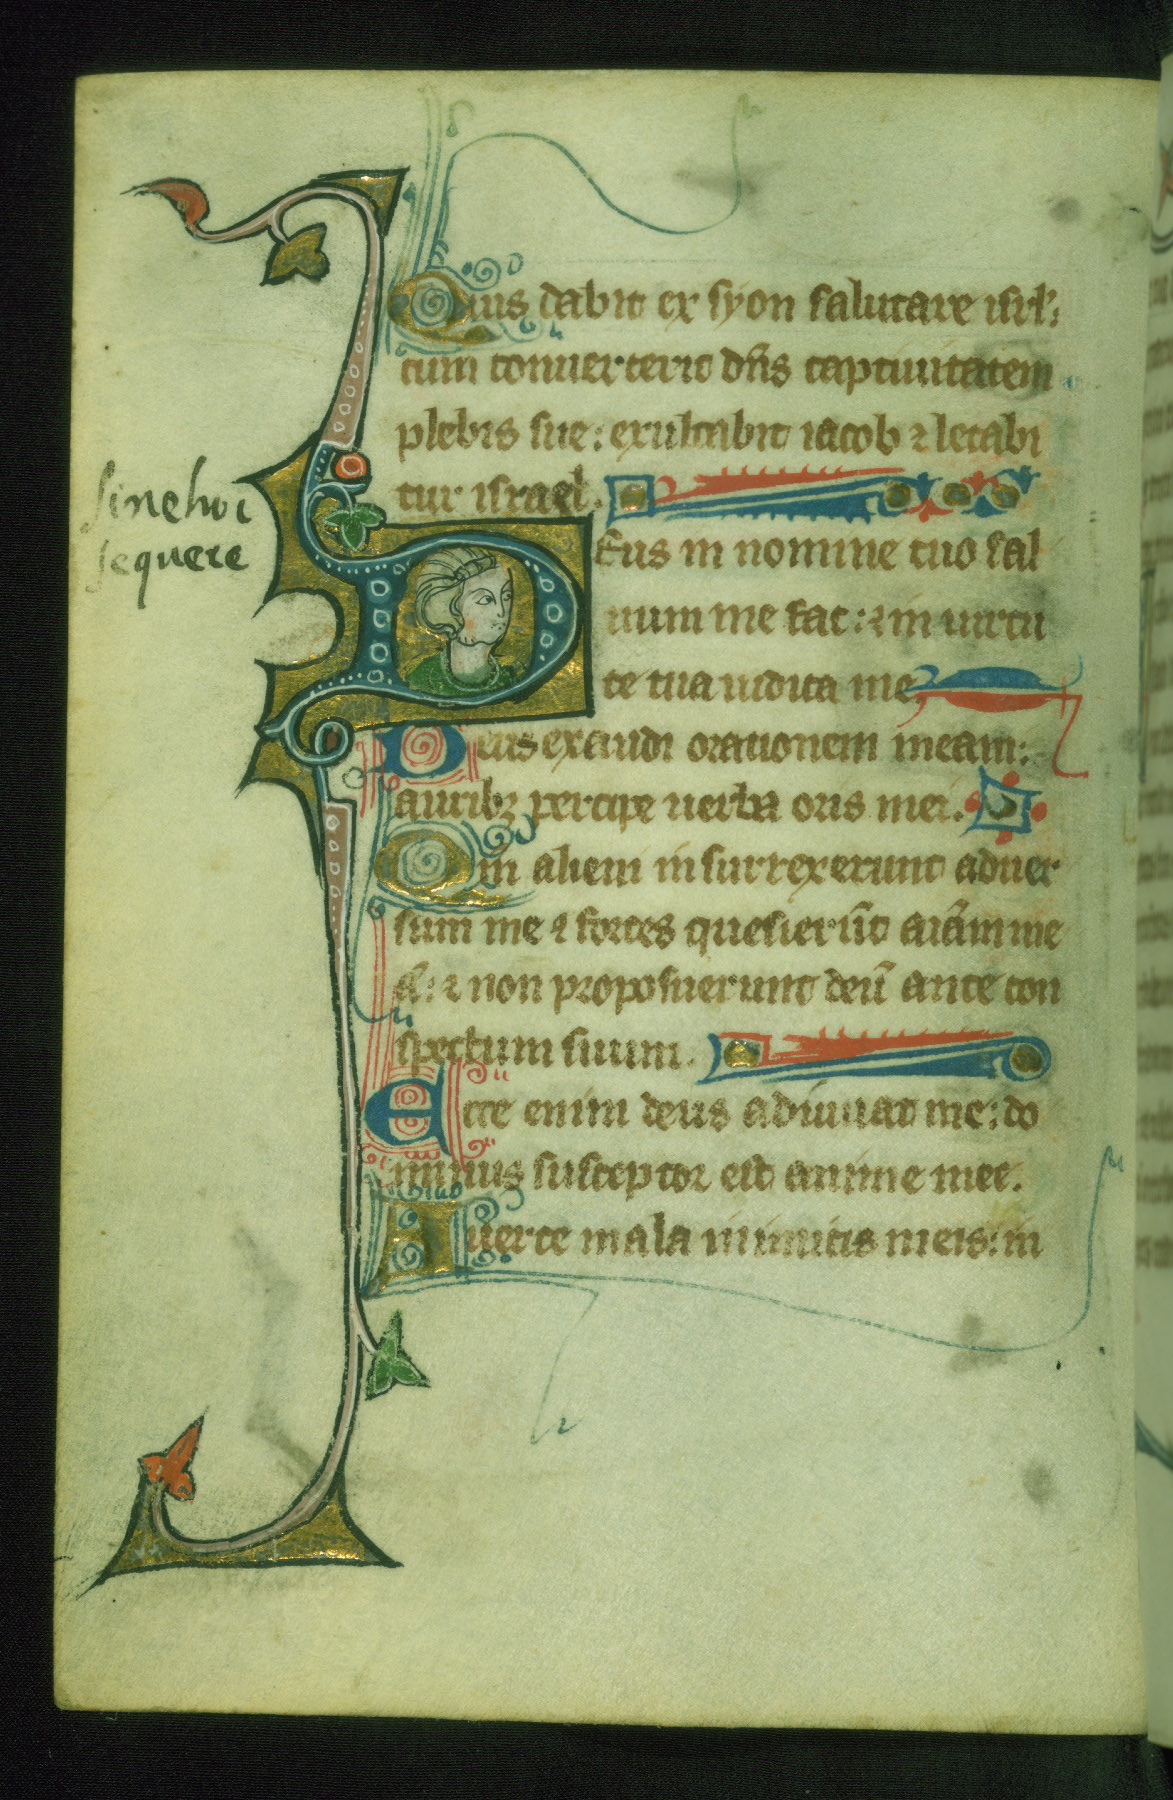 Quis dabit ex syon salutare isrl':
cum conuerterit dn̄s captiuitatem
plebis sue: exultabit iacob ⁊ letabi
tur israel.
sine hoc
sequere
Deus in nomine tuo sal
uum me fac: ⁊ in uirtu
te tua iudica me.
Deus exaudi orationem meam:
auribꝫ percipe uerba oris mei.
Qm̄ alieni insurrexerunt aduer
sum me ⁊ fortes quesierūt aīam me
ā: ⁊ non proposuerunt deū ante con
spectum suum.
Ecce enim deus adiuuat me: do
minus susceptor est anime mee.
Auerte mala inimicis meis: in